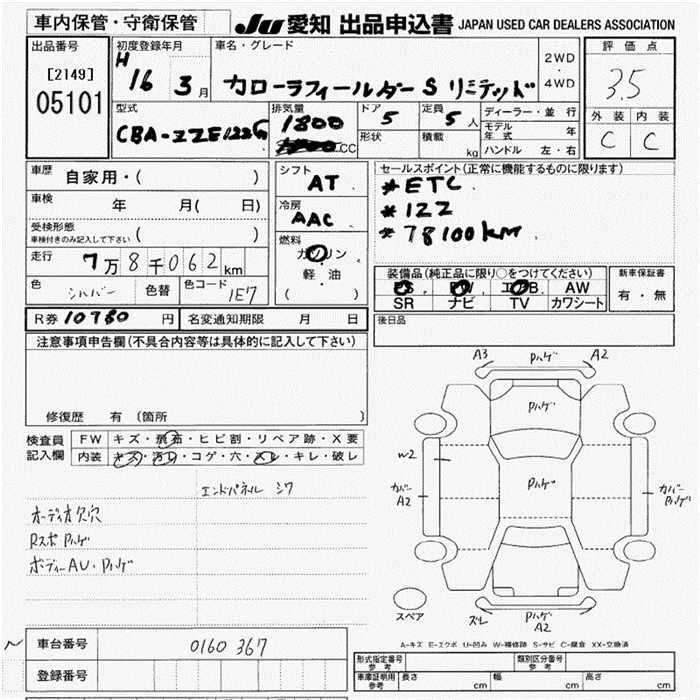 車内保管・守衛保管
JU 愛知 出品申込書 JAPAN USED CAR DEALERS ASSOCIATION
出品番号
[2149]
05101
初度登録年月
H 16 3月
車名・グレード
カローラフィールダー S リミテッド
2WD
・
4WD
評価点
3.5
外装 内装
C C
型式
CBA-ZZE122G
排気量
1800
CC
ドア
5
形状
定員
5人
積載
kg
ディーラー・並行
モデル年式 年
ハンドル 左・右
車歴 自家用・( )
車検 年 月( 日)
受検形態
車検付きのみ記入して下さい ( )
走行 7万8千062km
色 シルバー 色替 色コード 1E7
シフト
AT
冷房
AAC
燃料
ガソリン
・
軽・油
( )
セールスポイント(正常に機能するものに限ります)
*ETC
*122
*78100km
装備品(純正品に限り○をつけてください)
PS PW エアB AW
SR ナビ TV カワシート
新車保証書
有・無
後日品
R券 10780 円 名変通知期限 月 日
注意事項申告欄(不具合内容等は具体的に記入して下さい)
修復歴 有 〔箇所 〕
検査員
記入欄
FW キズ・飛石・ヒビ割・リペア跡・X要
内装 キズ・汚レ・コゲ・穴・スレ・キレ・破レ
エンドパネル シワ
オーディオ欠穴
Rスポ Pハゲ
ボディーAU・Pハゲ
A3 Pハゲ A2
Pハゲ
W2
Pハゲ
カバー
A2
カバー
Pハゲ
スペア
ズレ
Pハゲ
A2
A-キズ E-エクボ U-凹み W-補修跡 S-サビ C-腐食 XX-交換済
車台番号 0160367
登録番号
型式指定番号
参考
類別区分番号
参考
車庫証明用
参考
長さ cm 幅 cm 高さ cm